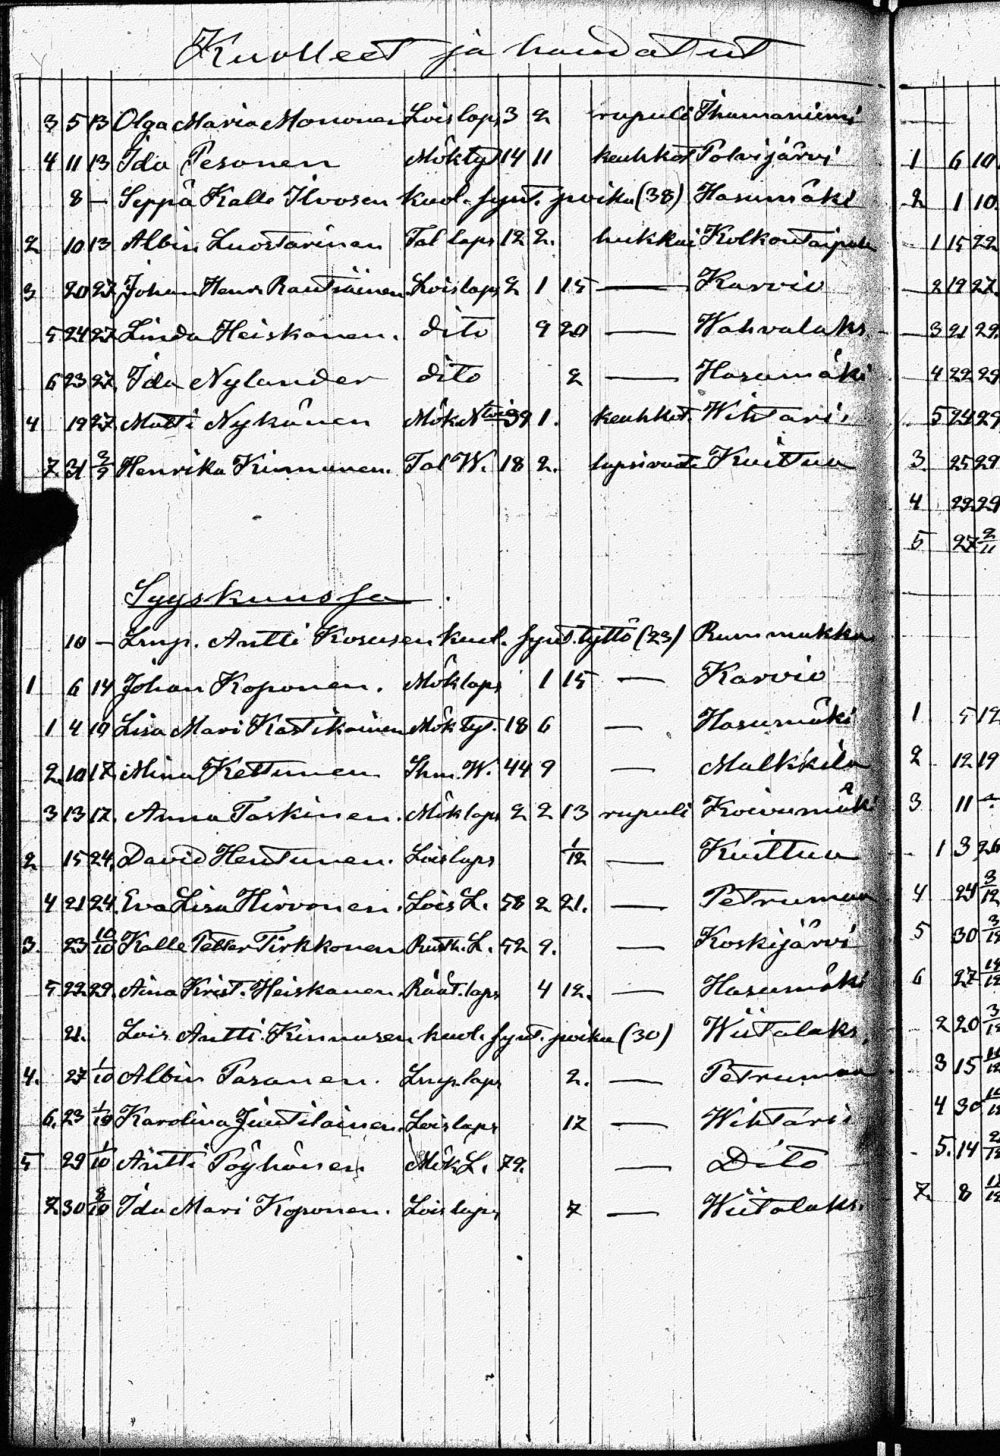 Kuolleet ja haudatut
3 5 13 Olga Maria Mononen Lois laps 3 2 rupuli
4 11 13 Ida Pesonen Mök tyt 14 11 keuhkot Polvijärvi
8 — Seppä Kalle Ilvosen kuol. synt. poika (38) Hasumäki
2 10 13 Albin Luostarinen Tal laps 12 2.
3 20 27 Johan Henr. Rautiäinen Lois laps 2 1 15 — Karvio
5 24 27 Linda Heiskanen. dito 9 20 — Wahvalaks.
6 23 27 Ida Nylander dito 2 — Hasumäki
4 19 27 Matti Nykänen 39 1. keuhkot. Wihtari
7 31 3/9 Henrika Kinnunen. Tal W. 18 2. Kuittua
Syyskuussa
10 — Lmp. Antti Kososen kuol. synt. tyttö (23) Rummukka
1 6 14 Johan Koponen. Mök laps 1 15 — Karvio
1 4 19 Lisa Mari Kastikainen Mök tyt. 18 6 — Hasumäki
2. 10 17 Mina Kettunen W. 44 9 — Malkkila
3 13 17. Anna Taskinen. Mök laps 2 2 13 rupuli Koivumäki
2 15 24 David Hentunen. Lois laps 1/12 — Kuittua
4 21 24 Eva Lisa Hirvonen. Lois L. 58 2 21. — Petrumaa
3. 23 10/10 Kalle Petter Tirkkonen Ruoth. L. 52 9. — Koskijärvi
5 22 29. Aina Krist. Heiskanen. Räät. laps 4 12. — Hasumäki
21. Lois Antti Kinnusen kuol. synt. poika (30) Wiitalaks.
4. 27 1/10 Albin Pasanen. Lmp. laps 2. — Petrumaa
6. 23 1/10 Karolina Juntilainen. Lois laps 12 — Wihtari
5 29 1/10 Antti Pöyhönen Mök L. 79. — Dito
7 30 8/10 Ida Mari Koponen. Lois laps 7 — Wiitalaks.
1 6 10.
2 1 10.
1 15 22
2 19 27.
3 21 29.
4 22 29
5 24 29
3 25 29
4 29 29
5 27 2/11
1 5 12
2 12 19
3 11 -
1 3 26
4 24 3/12
5 30
6 27
2 20
3 15
4 30
5. 14
7 8